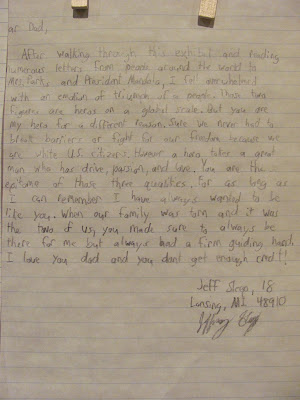 ar Dad,
After walking through this exhibit and reading
numerous letters from people around the world to
Mrs. Parks and President Mandela, I feel overwhelmed
with an emotion of triumph of a people. Those two
figures are heros on a global scale. But you are
my hero for a different reason. Sure we never had to
break barriers or fight for our freedom because we
are white U.S. citizens. However a hero takes a great
man who has drive, passion, and love. You are the
of those three qualities. For as long as
I can remember I have always wanted to be
like you. When our family was torn and it was
the two of us, you made sure to always be
there for me but always had a firm guiding hand.
I love you dad and you dont get enough credit!
Jeff 18
Lansing, MI 48910